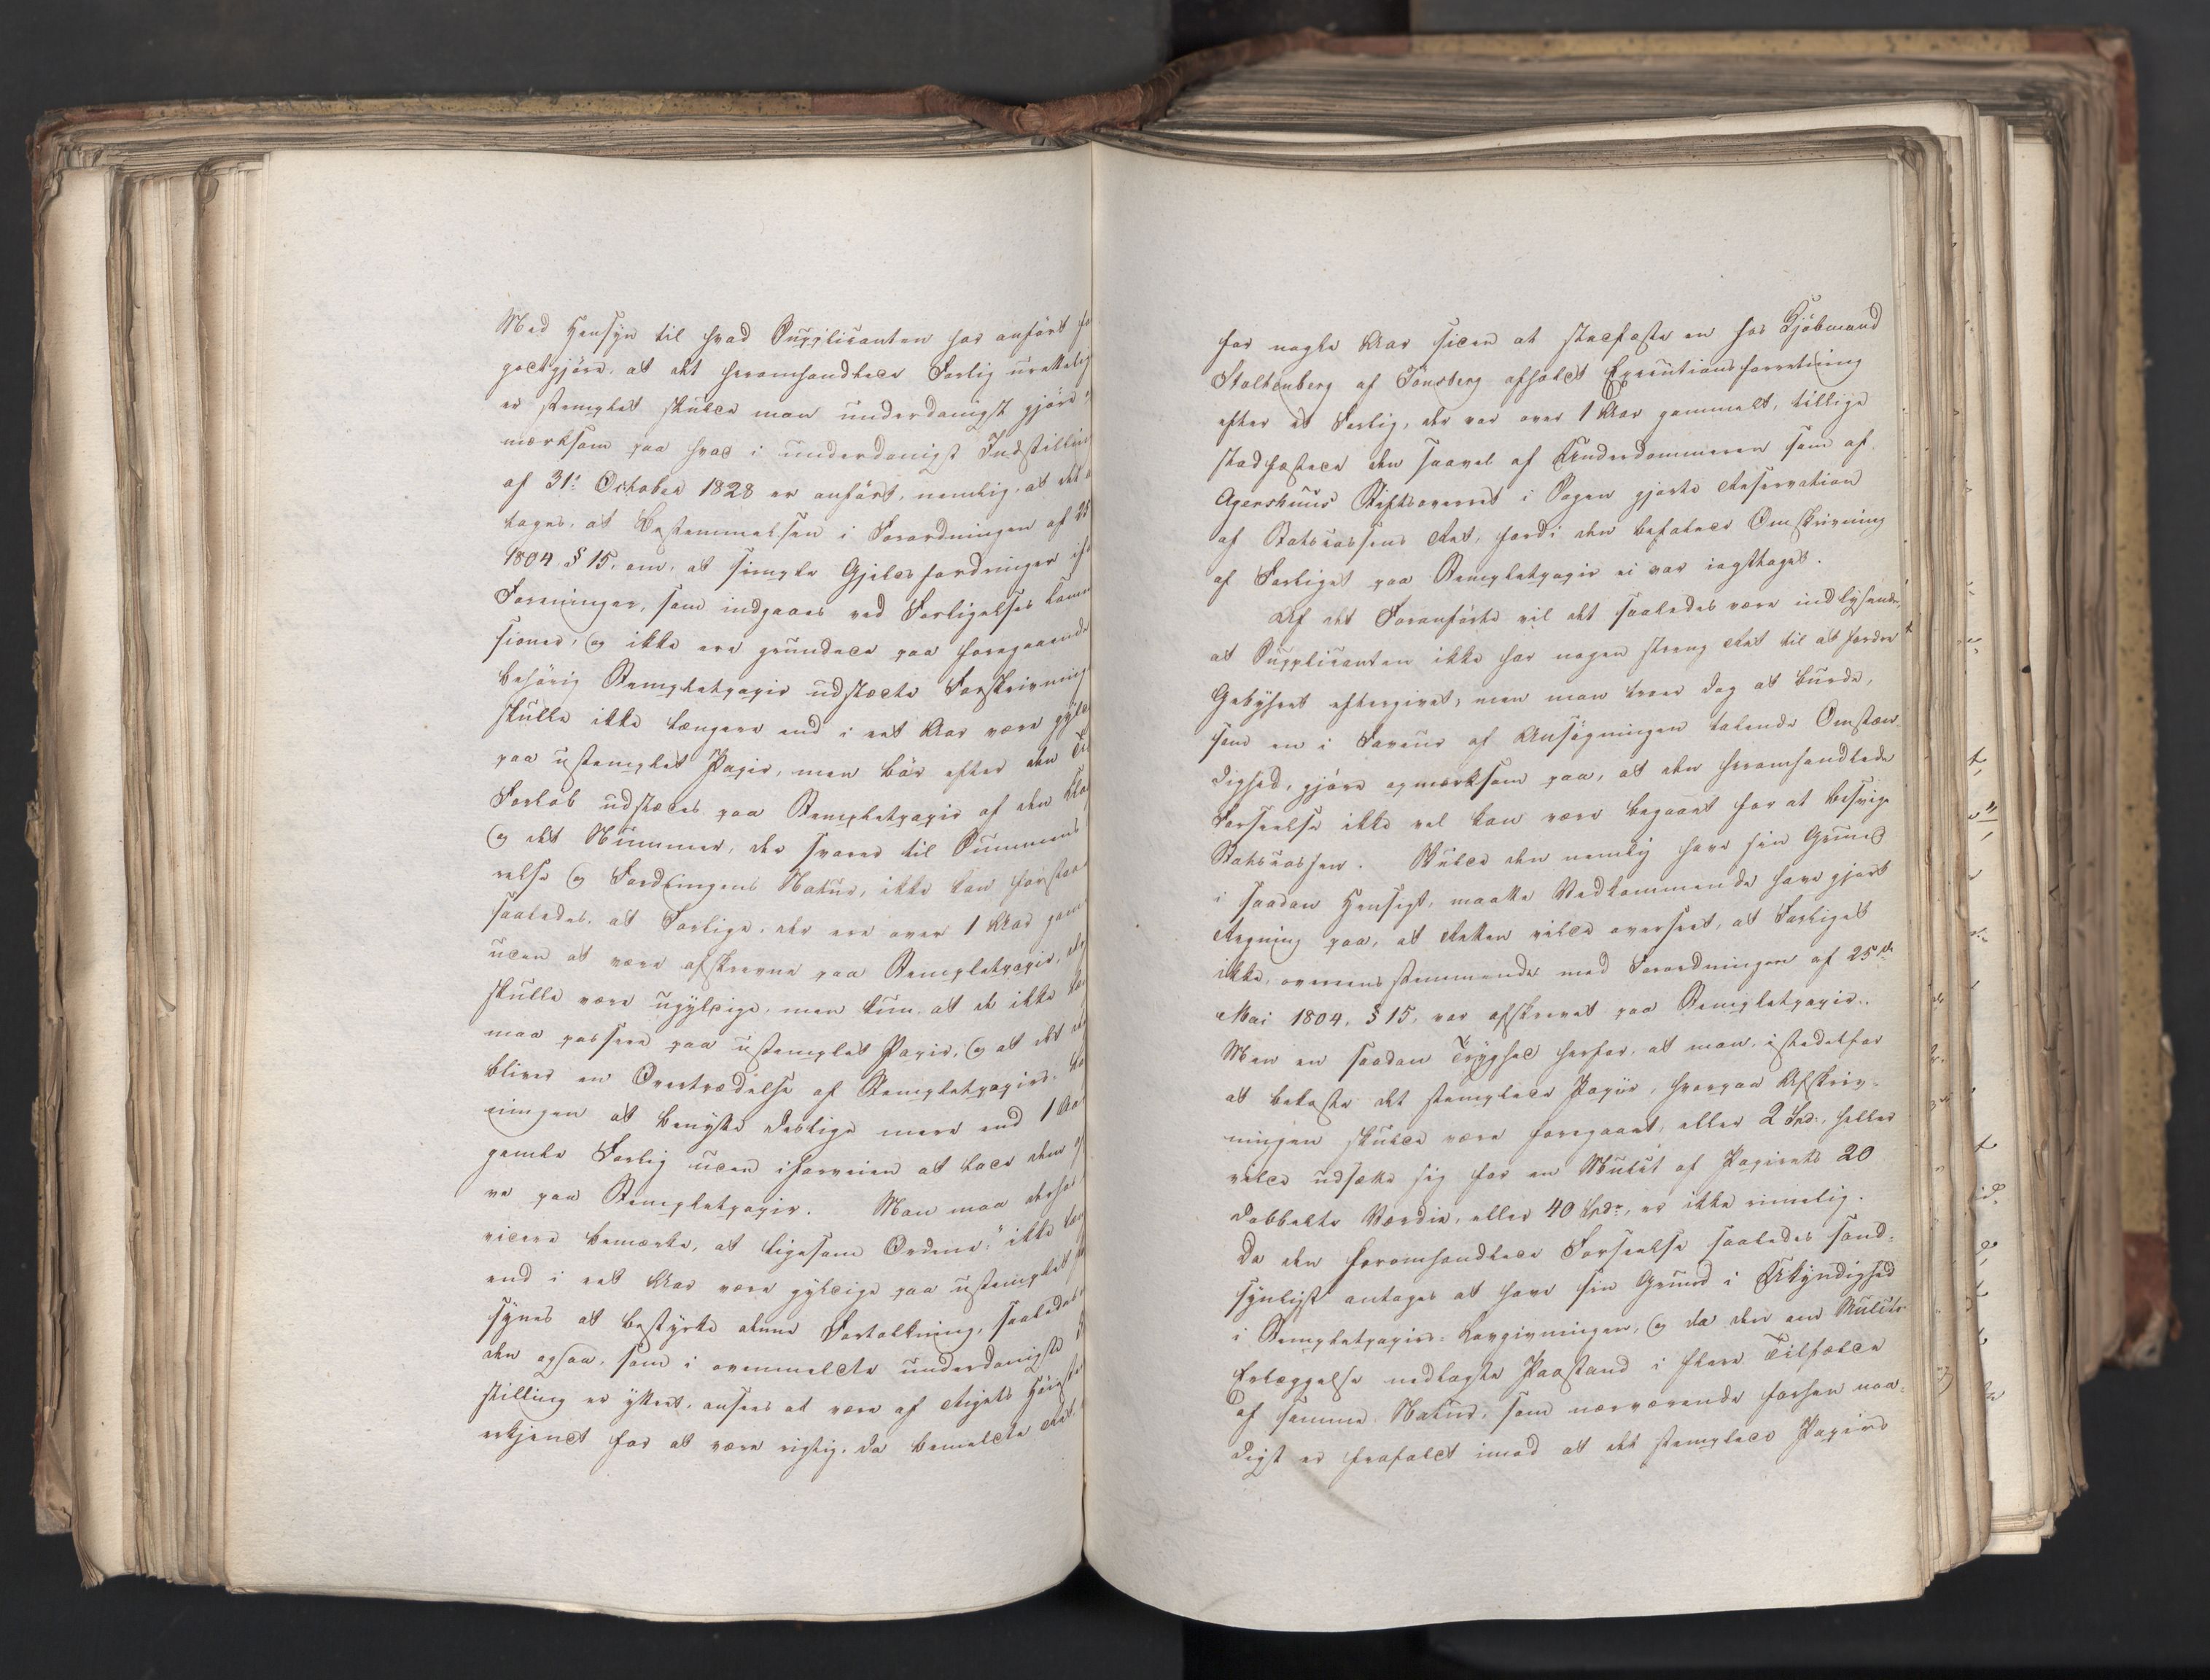 Med Hensyn til hvad Supplicanten har anført
godtgjøre, at det heromhandlede Forlig urettelig
er stemplet skulde man underdanigst gjøre
mærksom paa hvad i underdanigst Indstilling
af 31. October 1828 er anført, nemlig, at det
tages, at Bestemmelsen i Forordningen af 25
1804 § 15, om, at simple Gjeldsfordringer
Foreninger, som indgaaes ved Forligelses Com
sioner, og ikke ere grundede paa foregaaende
behørig Stempletpapir udstædte Forskrivning
skulle ikke længere end i eet Aar være gyld
paa ustemplet Papir, men bør efter den Ti
Forløb udstædes paa Stempletpapir af den Kla
og det Nummer, der svarer til Summens
relse og Fordringens Natur, ikke kan forstaa
saaledes, at Forlige, der ere over 1 Aar gam
uden at være afskrevne paa Stempletpapir,
skulle være ugyldige, men kun, at de ikke
maa passere paa ustemplet Papir, og at det
bliver en Overtrædelse af Stempletpapirs
ningen at benytte deslige mere end 1 Aar
gamle Forlig uden iforveien at lade dem
ve paa Stempletpapir. Man maa derhos
videre bemærke, at ligesom Ordene: "ikke læn
end i eet Aar være gyldige paa ustemplet
synes at bestyrke denne Fortolkning, saaledes
den ogsaa, som i ovenmeldte underdanigste
stilling er yttret, ansees at være af Rigets Høieste
erkjendt for at være rigtig, da bemeldte Ret
for nogle Aar siden at stadfæste en hos Kjøbmand
Stoltenberg af Tønsberg afholdt Executionsforretning
efter et Forlig, der var over 1 Aar gammelt, tillige
stadfæstede den saavel af Underdommeren som af
Agershuus Stiftsoverret i Sagen gjorte Reservation
af Statscassens Ret, fordi den befalede Omskrivning
af Forliget paa Stempletpapir ei var iagttaget.
Af det Foranførte vil det saaledes være indlysende,
at Supplicanten ikke har nogen streng Ret til at fordre
Gebyhret eftergivet, men man troer dog at burde,
som en i Faveur af Ansøgningen talende Omstæn-
dighed, gjøre opmærksom paa, at den heromhandlede
Forseelse ikke vel kan være begaaet for at besvige
Statscassen. Skulde den nemlig have sin Grund
i saadan Hensigt, maatte Vedkommende have gjort
Regning paa, at Retten vilde overseet, at Forliget
ikke, overeensstemmende med Forordningen af 25de
Mai 1804, § 15, var afskrevet paa Stempletpapir.
Men en saadan Tryghed herfor, at man, istedetfor
at bekoste det stemplede Papiir, hvorpaa Afskriv-
ningen skulde være foregaaet, eller 2 Spd., heller
vilde udsætte sig for en Mulct af Papirets 20
dobbelte Værdie, eller 40 Spdr, er ikke rimelig.
Da den heromhandlede Forseelse saaledes sand-
synligst antages at have sin Grund i Ukyndighed
i Stempletpapirs-Lovgivningen, og da den om Mulcts
Erlæggelse nedlagte Paastand i flere Tilfælde
af samme Natur, som nærværende forhen naa-
digst er frafaldt imod at det stemplede Papirs